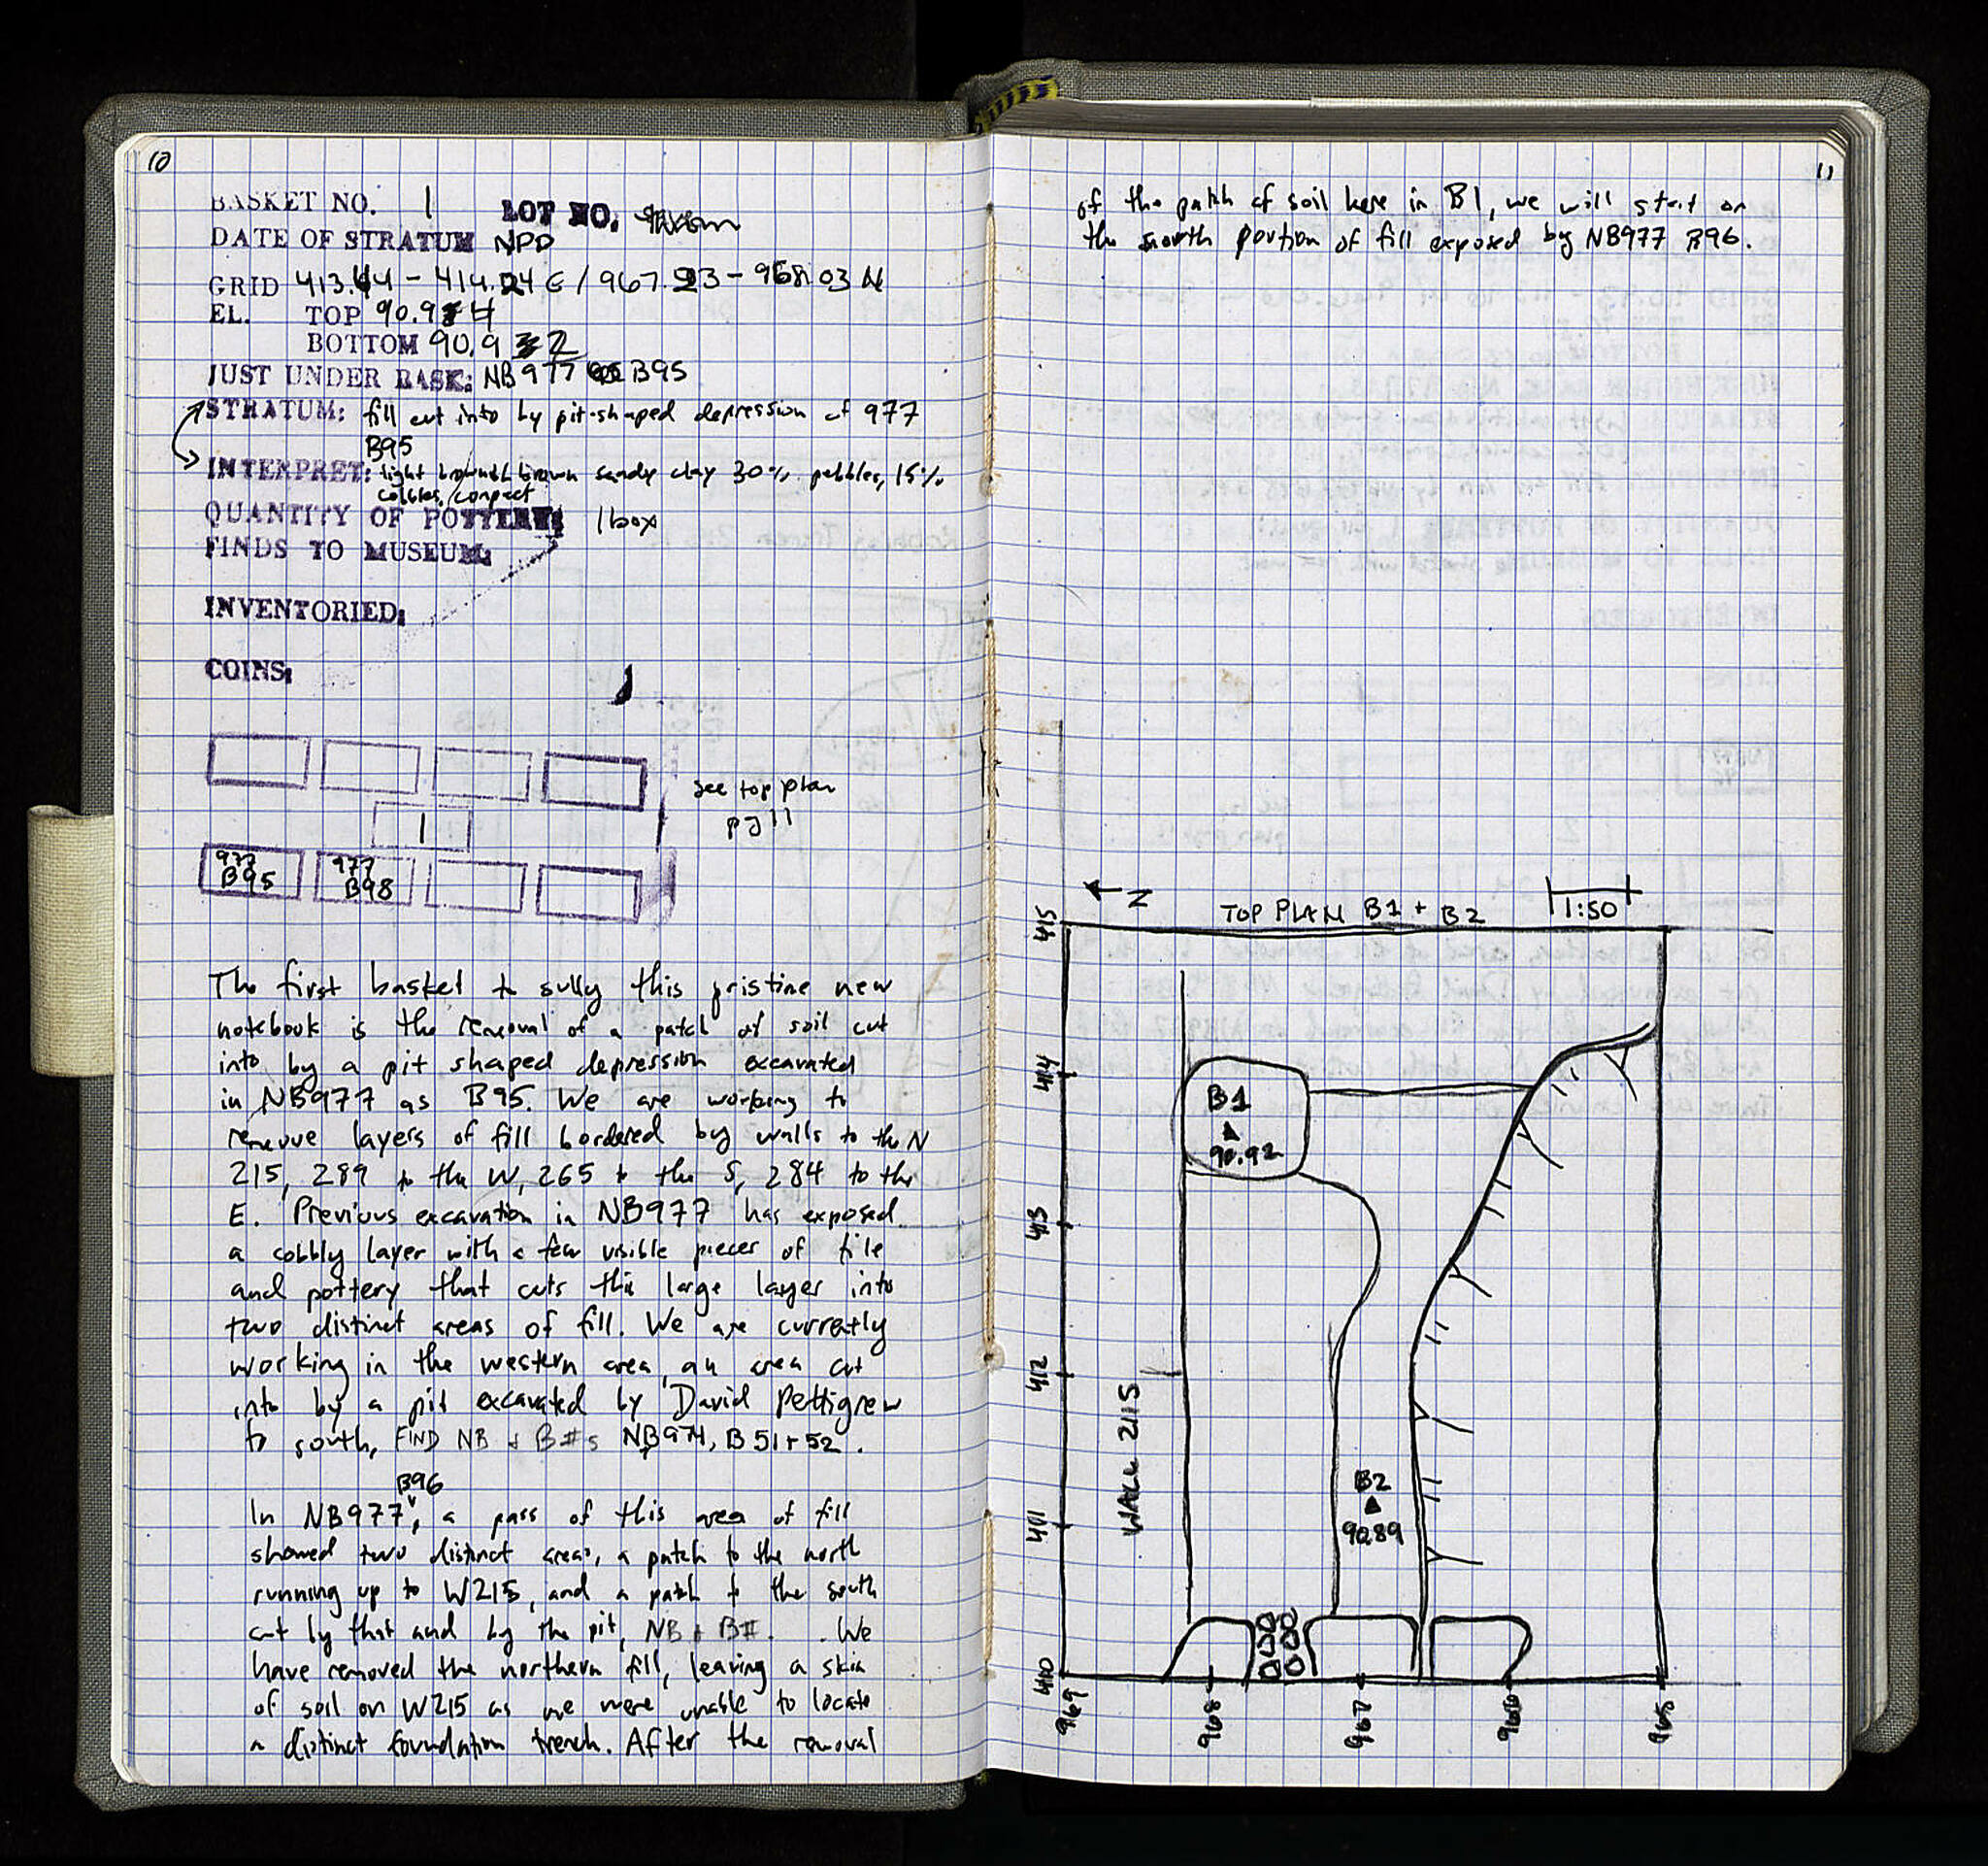 10
BASKET NO. 1 LOT NO.
DATE OF STRATUM NPD
GRID 413.44 - 414.24 E / 967.23 - 968.03 N
EL. TOP 90.94
BOTTOM 90.92
JUST UNDER BASK: NB977 B95
STRATUM: fill cut into by pit-shaped depression of 977
B95
INTERPRET: light brown sandy clay 30% pebbles, 15%
cobbles, compact
QUANTITY OF POTTERY: 1 box
FINDS TO MUSEUM:
INVENTORIED:
COINS:
see top plan
pg 11
1
977 B95
977 B98
The first basket to sully this pristine new
notebook is the removal of a patch of soil cut
into by a pit shaped depression excavated
in NB977 as B95. We are working to
remove layers of fill bordered by walls to the N
215, 289 to the W, 265 to the S, 284 to the
E. Previous excavation in NB977 has exposed
a cobbly layer with a few visible pieces of tile
and pottery that cuts this large layer into
two distinct areas of fill. We are currently
working in the western area, an area cut
into by a pit excavated by David Pettigrew
to south, FIND NB + B#s NB974, B51+52.
B96
In NB977, a pass of this area of fill
showed two distinct areas, a patch to the north
running up to W215, and a patch to the south
cut by that and by the pit, NB + B#. We
have removed the northern fill, leaving a skin
of soil on W215 as we were unable to locate
a distinct foundation trench. After the removal
11
of the patch of soil here in B1, we will start on
the north portion of fill exposed by NB977 B96.
← N
TOP PLAN B1 + B2
1:50
415
414
B1
90.92
413
412
WALL 215
B2
90.89
411
410
969
968
967
966
965